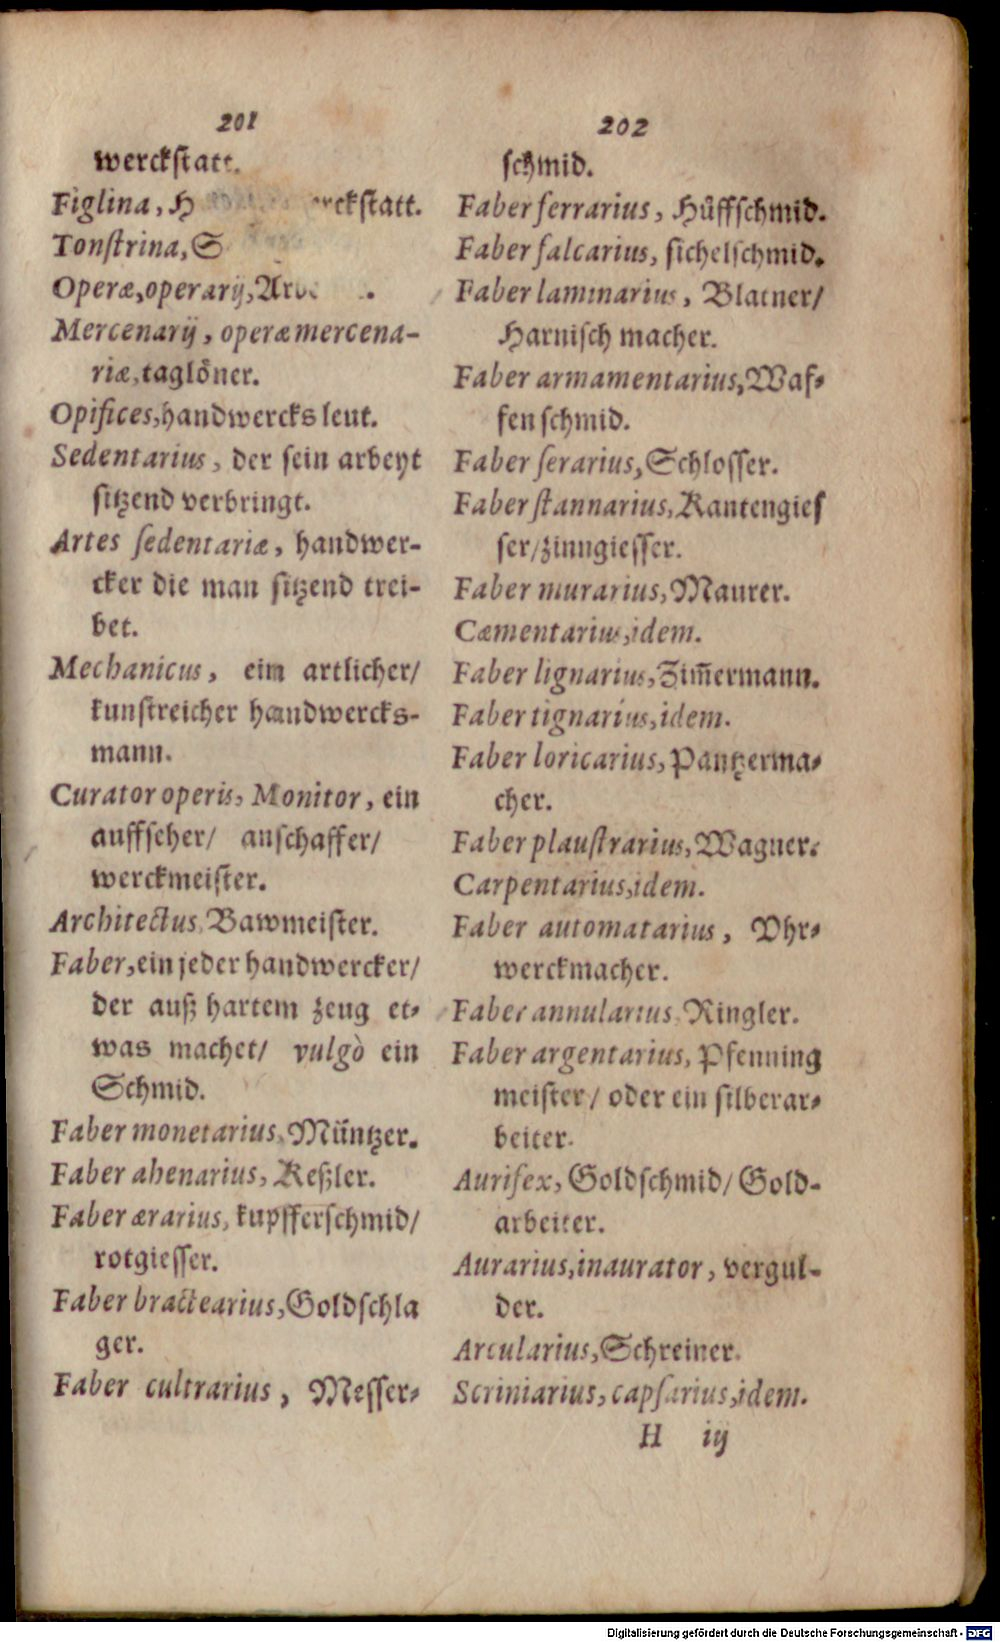 201
werckstatt.
Figlina, H
Tonstrina, S
Operæ, operarij,
Mercenarij, operæ mercena-
riæ, taglöner.
Opifices, handwercks leut.
Sedentarius, der sein arbeyt
sitzend verbringt.
Artes sedentariæ, handwer-
cker die man sitzend trei-
bet.
Mechanicus, ein artlicher/
kunstreicher handwercks-
mann.
Curator operis, Monitor, ein
auffseher/ anschaffer/
werckmeister.
Architectus, Bawmeister.
Faber, ein jeder handwercker/
der auß hartem zeug et-
was machet/ vulgò ein
Schmid.
Faber monetarius, Müntzer.
Faber ahenarius, Keßler.
Faber ærarius, kupfferschmid/
rotgiesser.
Faber bractearius, Goldschla
ger.
Faber cultrarius, Messer-
202
schmid.
Faber ferrarius, Hüffschmid.
Faber falcarius, sichelschmid.
Faber laminarius, Blatner/
Harnisch macher.
Faber armamentarius, Waf-
fen schmid.
Faber serarius, Schlosser.
Faber stannarius, Kantengies
ser/ zinngiesser.
Faber murarius, Maurer.
Cæmentarius, idem.
Faber lignarius, Zim̄ermann.
Faber tignarius, idem.
Faber loricarius, Pantzerma-
cher.
Faber plaustrarius, Wagner.
Carpentarius, idem.
Faber automatarius, Vhr-
werckmacher.
Faber annularius, Ringler.
Faber argentarius, Pfenning
meister/ oder ein silberar-
beiter.
Aurifex, Goldschmid/ Gold-
arbeiter.
Aurarius, inaurator, vergul-
der.
Arcularius, Schreiner.
Scriniarius, capsarius, idem.
H iij
Digitalisierung gefördert durch die Deutsche Forschungsgemeinschaft - DFG